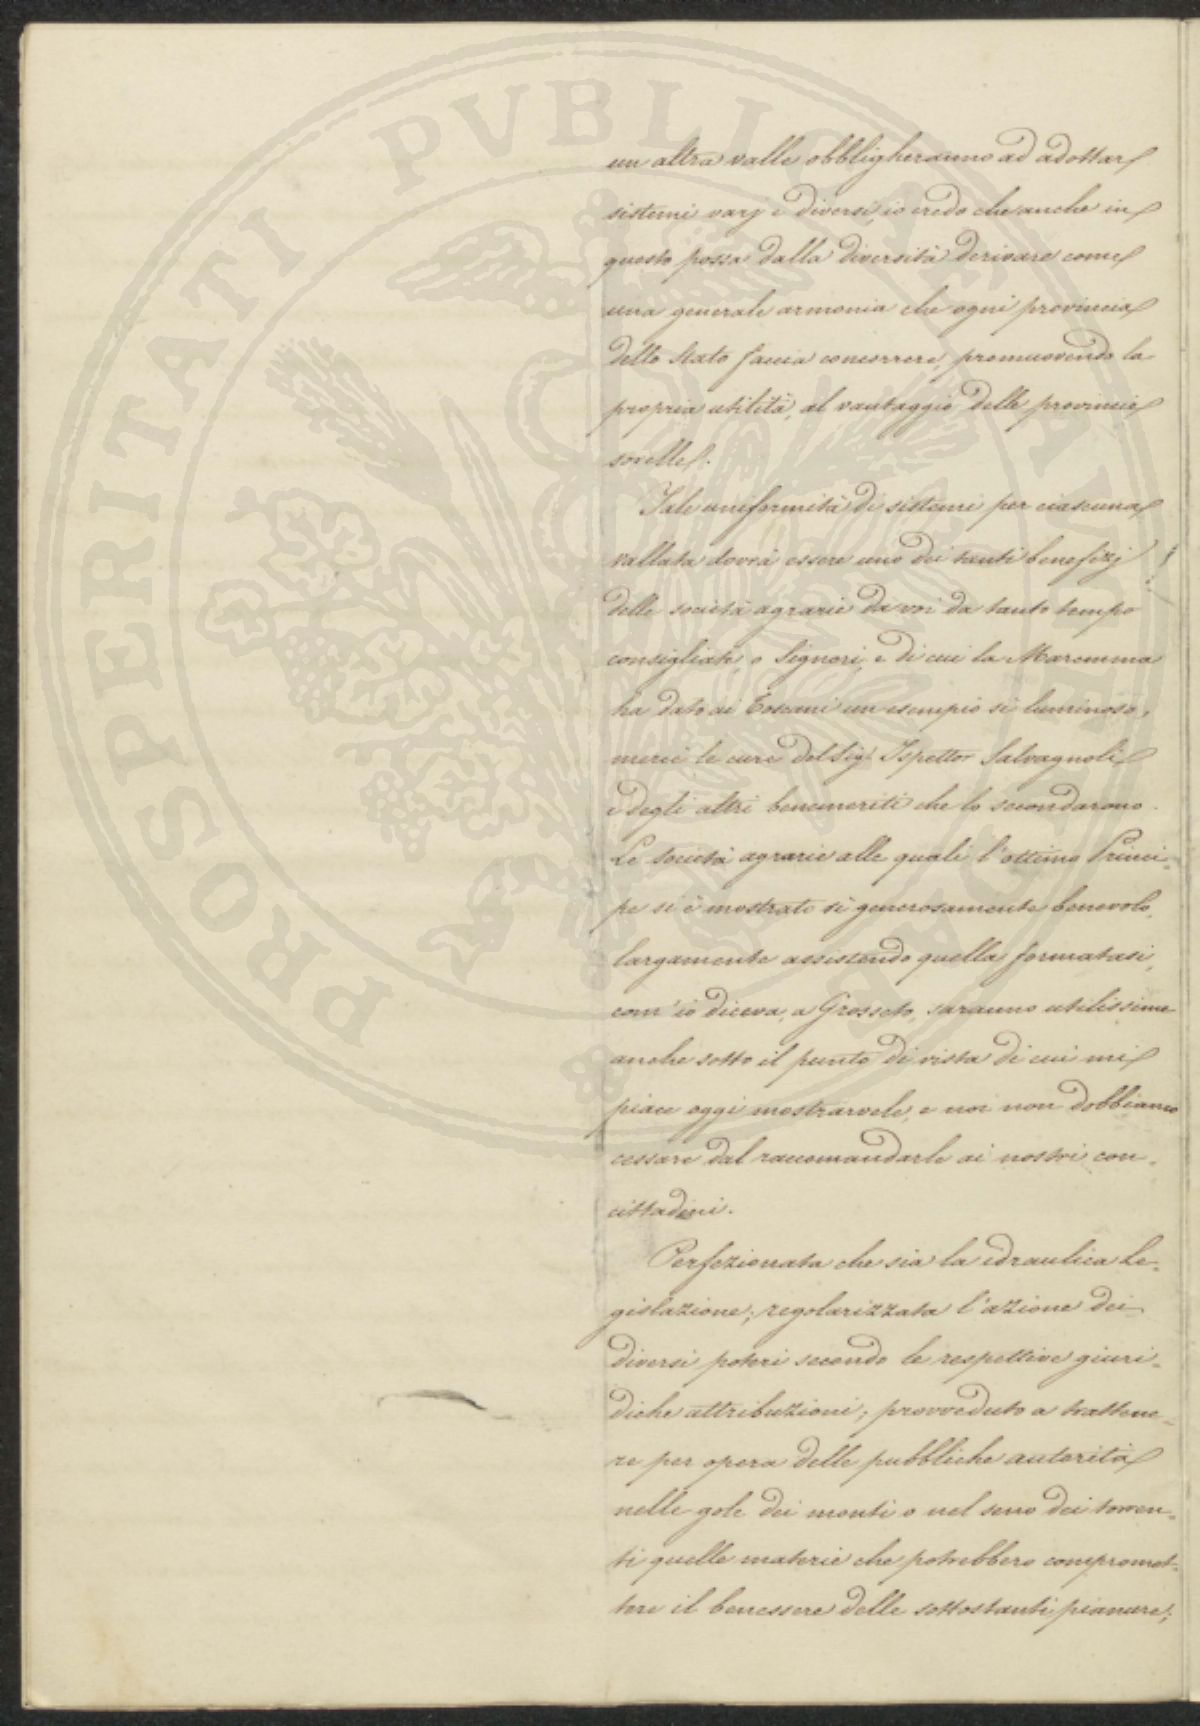 PROSPERITATI PVBLICAE
un altra valle obbligheranno ad adottare
sistemi varj e diversi, io credo che anche in
questo possa dalla diversità derivare come
una generale armonia che ogni provincia
dello Stato faccia concorrere, promuovendo la
propria utilità, al vantaggio delle provincie
sorelle.
Tale uniformità di sistemi per ciascuna
vallata dovrà essere uno dei tanti benefizj
delle società agrarie da voi da tanto tempo
consigliate, o Signori, e di cui la Maremma
ha dato ai Toscani un esempio sì luminoso,
mercè le cure del Sig. Ispettor Salvagnoli
e degli altri benemeriti che lo secondarono.
Le società agrarie alle quali l'ottimo Princi-
pe si è mostrato sì generosamente benevolo,
largamente assistendo quella formatasi,
com'io diceva, a Grosseto, saranno utilissime
anche sotto il punto di vista di cui mi
piace oggi mostrarvele, e noi non dobbiamo
cessare dal raccomandarle ai nostri con-
cittadini.
Perfezionata che sia la idraulica Le-
gislazione; regolarizzata l'azione dei
diversi poteri secondo le respettive giuri-
diche attribuzioni; provveduto a trattene-
re per opera delle pubbliche autorità
nelle gole dei monti o nel seno dei torren-
ti quelle materie che potrebbero compromet-
tere il benessere delle sottostanti pianure;